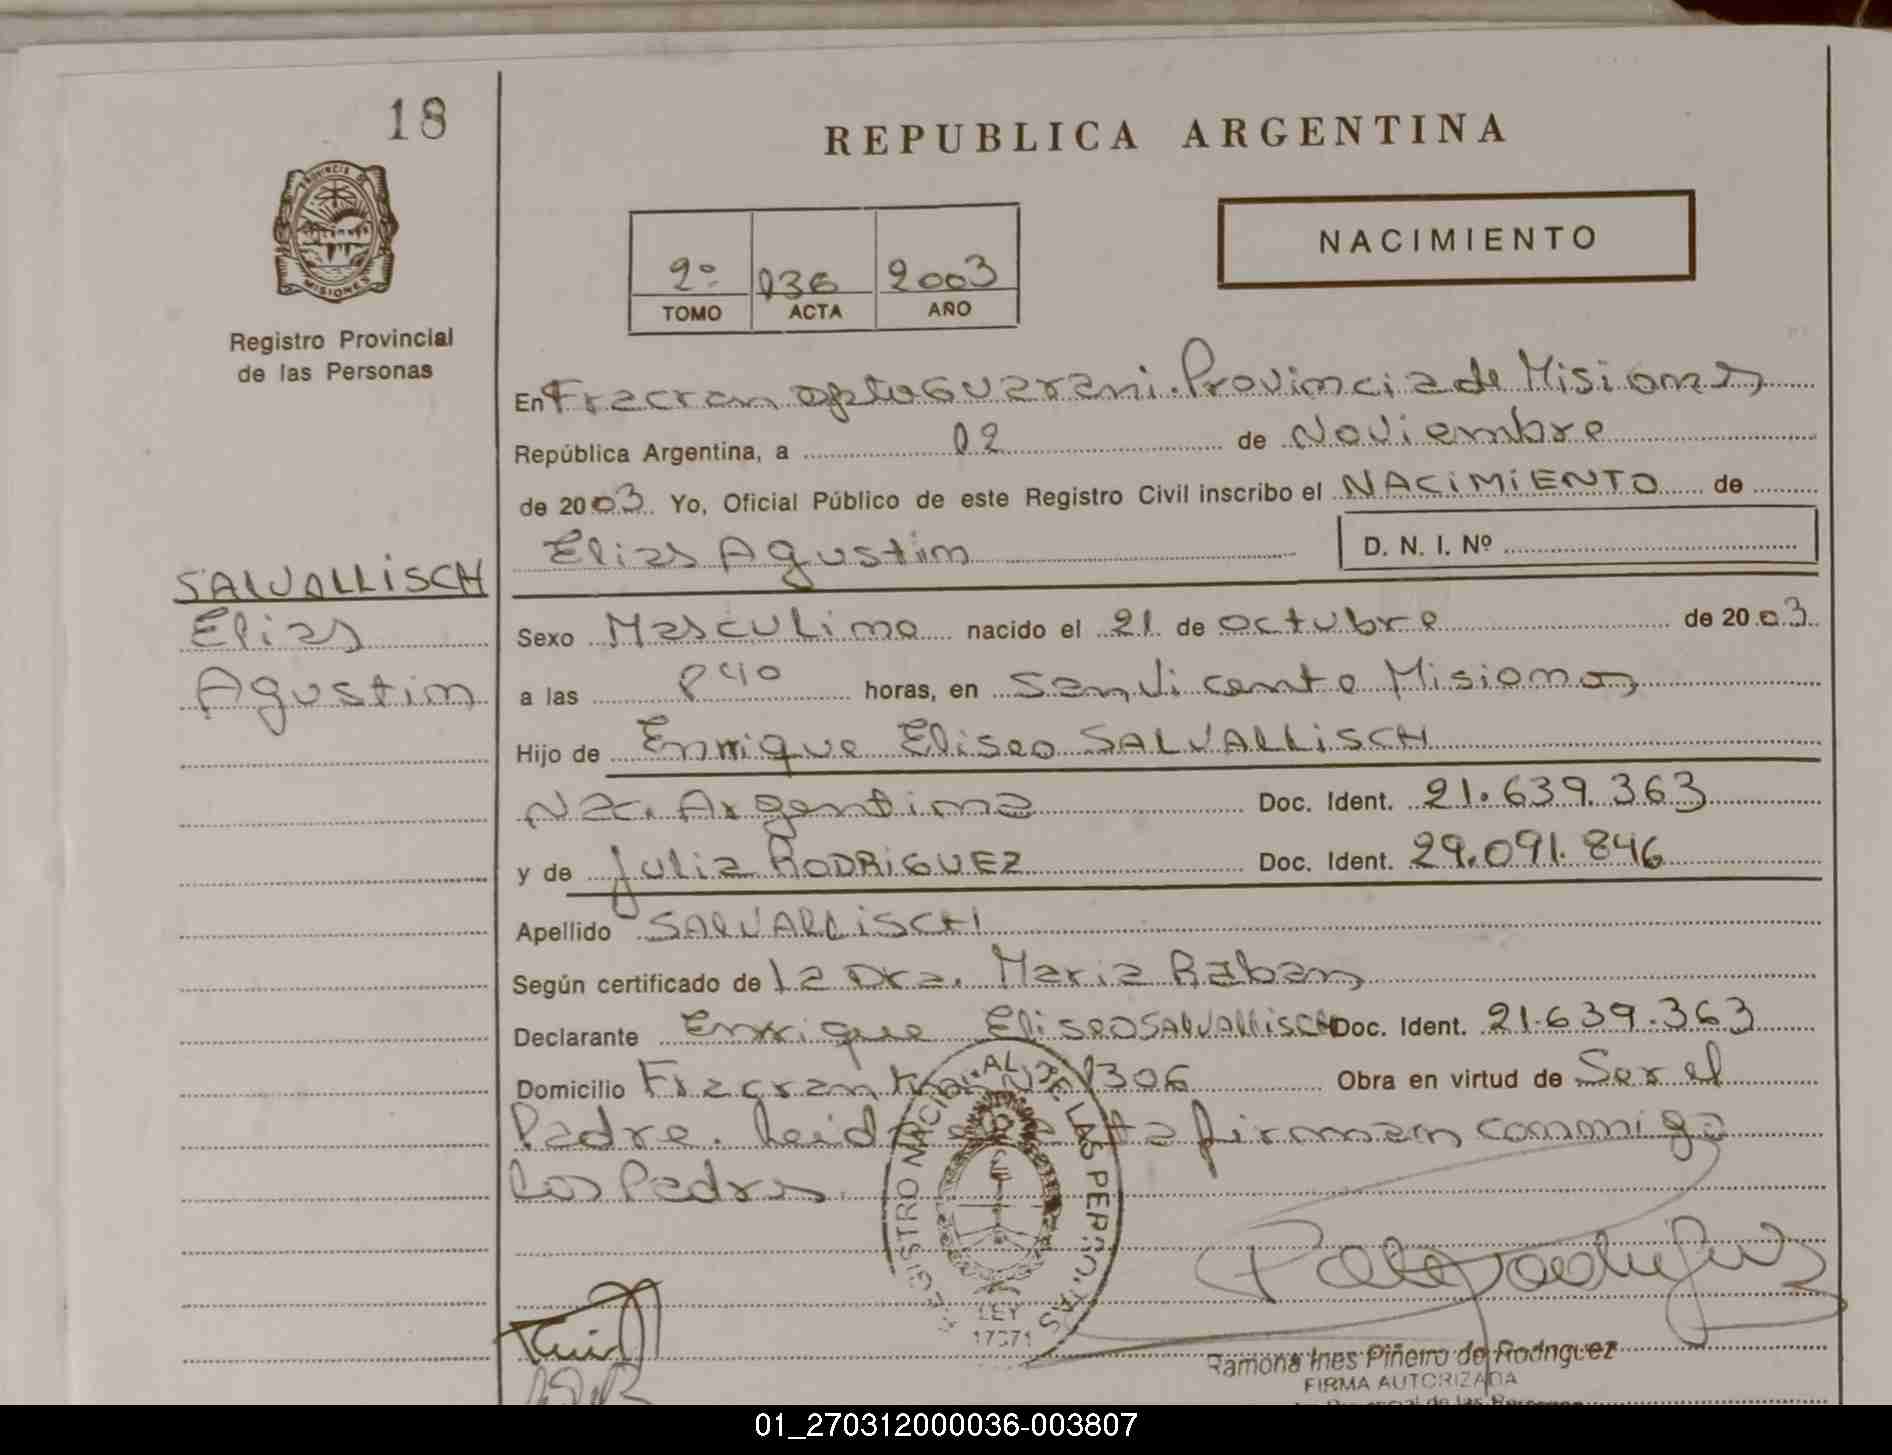 18
REPUBLICA ARGENTINA
PROVINCIA DE
MISIONES
Registro Provincial
de las Personas
2º 036 2003
TOMO ACTA AÑO
NACIMIENTO
En Fracran dpto Guarani. Provincia de Misiones
República Argentina, a 02 de Noviembre
de 2003. Yo, Oficial Público de este Registro Civil inscribo el NACIMIENTO de
Elias Agustin D. N. I. Nº
SALVALLISCH
Elias
Agustin
Sexo Masculino nacido el 21 de octubre de 2003.
a las 840 horas, en San Vicente Misiones
Hijo de Enrique Eliseo SALVALLISCH
Nac. Argentina Doc. Ident. 21.639.363
y de Julia RODRIGUEZ Doc. Ident. 29.091.846
Apellido SALVALLISCH
Según certificado de la Dra. Maria
Declarante Enrique Eliseo SALVALLISCH Doc. Ident. 21.639.363
Domicilio Fracran 1306 Obra en virtud de Ser el
Padre. Leida firman conmigo
los Padres.
REGISTRO NACIONAL DE LAS PERSONAS
LEY
17671
Ramona Ines Piñeiro de Rodriguez
FIRMA AUTORIZADA
de las Personas
01_270312000036-003807